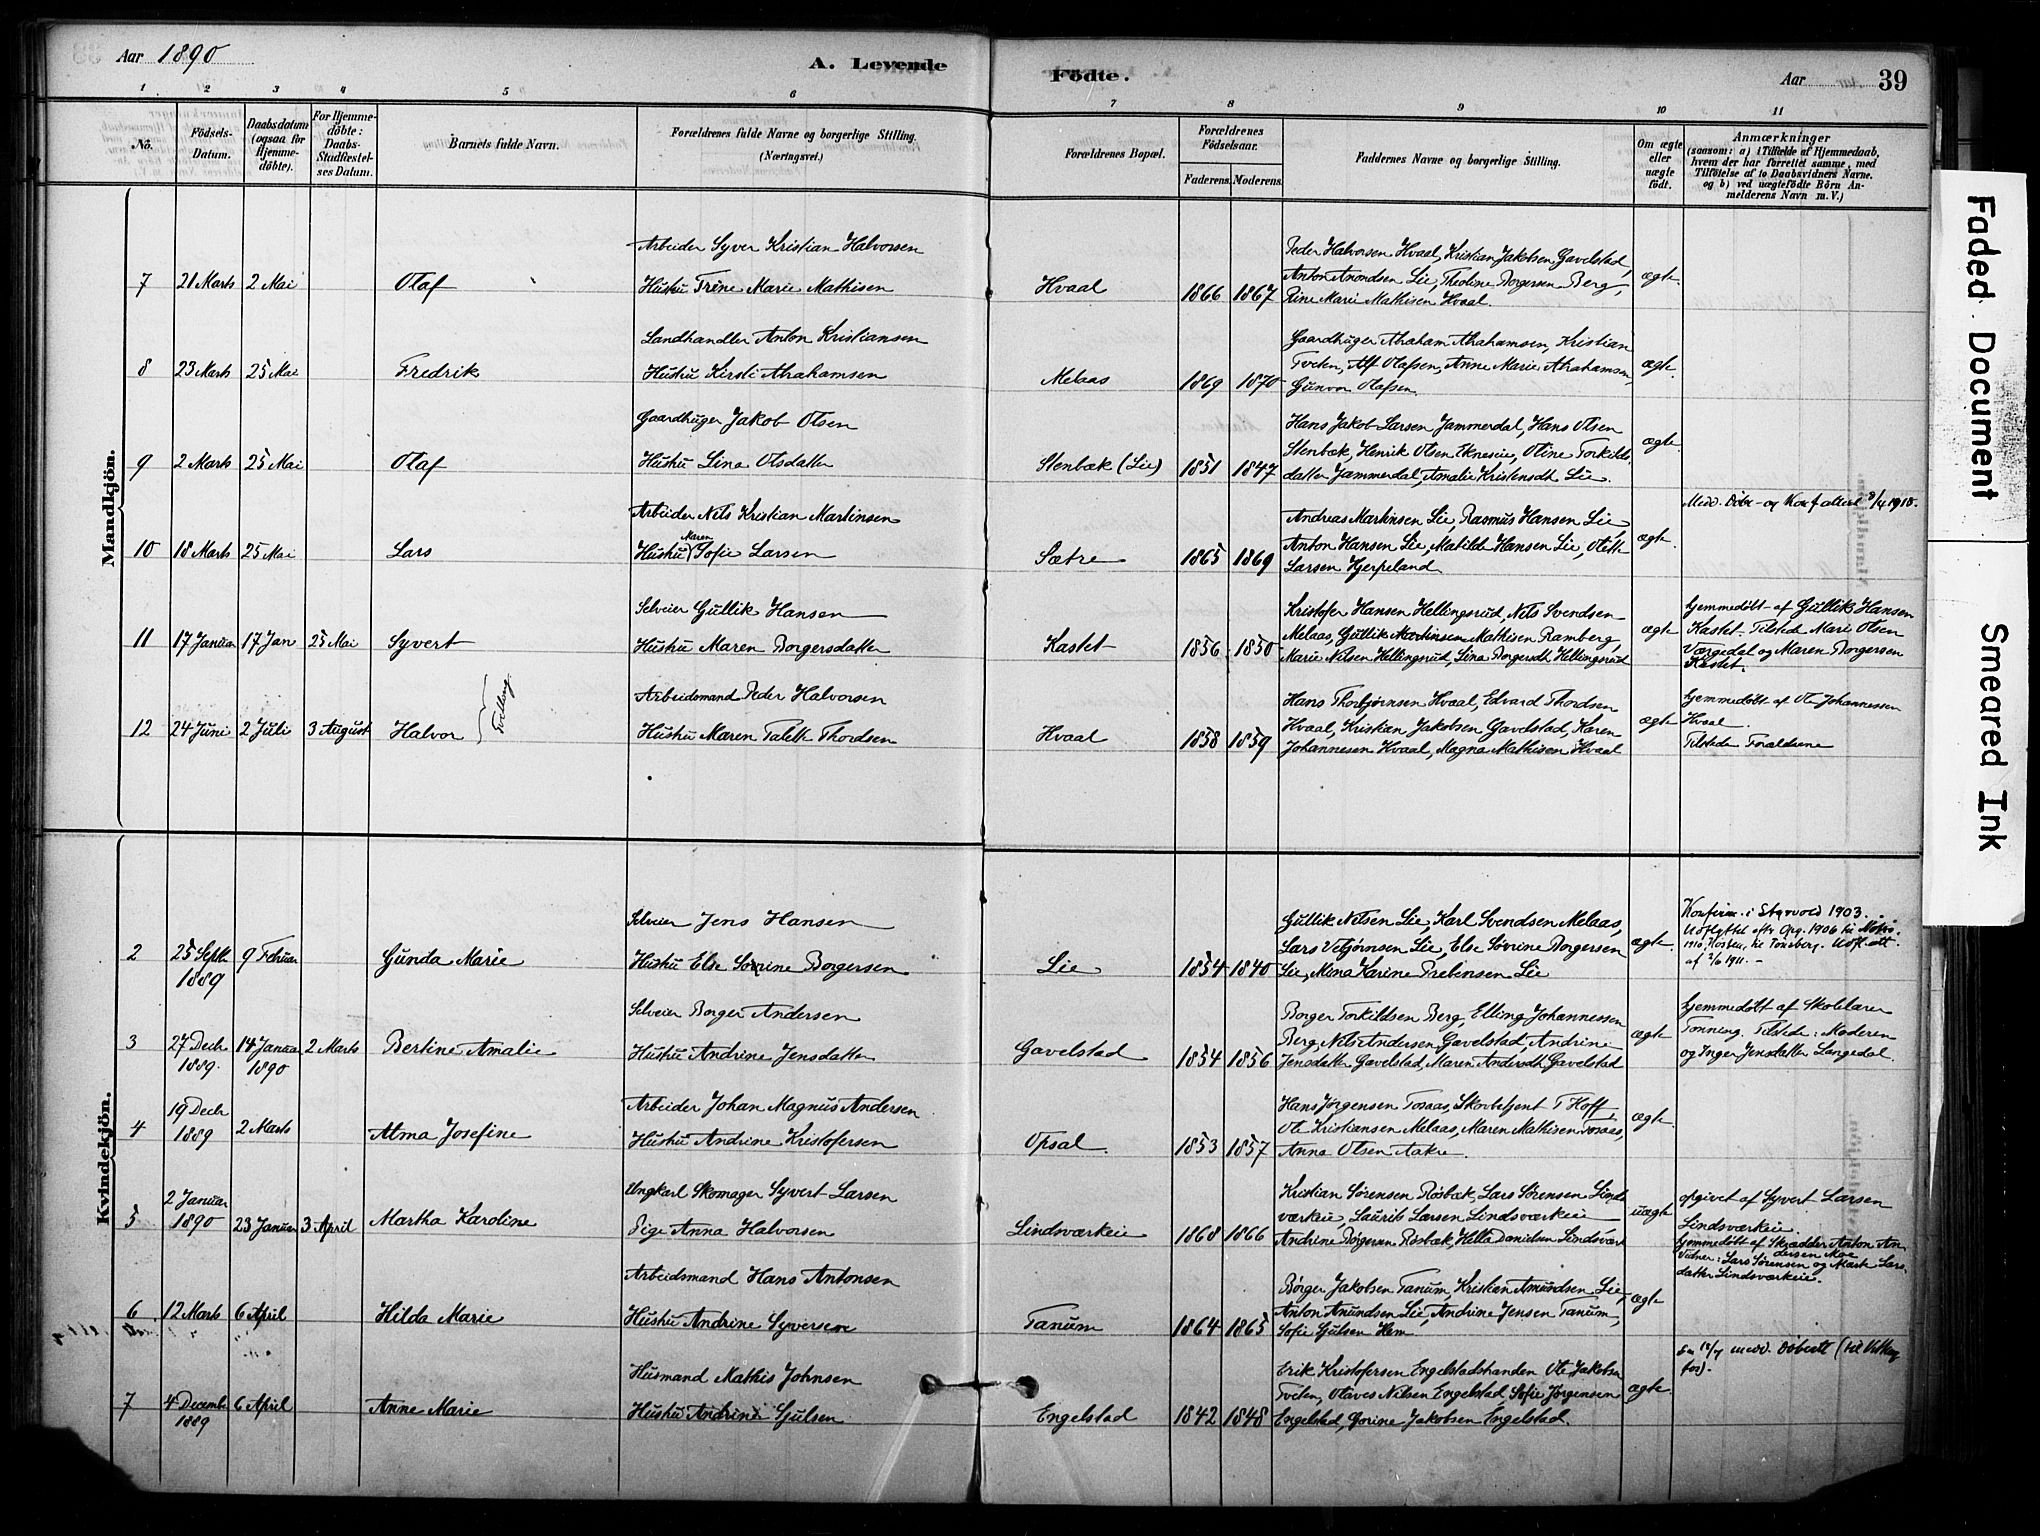 Aar 1890
A. Levende
Födte.
Aar 39
1 2 3 4 5 6 7 8 9 10 11
No.
Födsels-
Datum.
Daabsdatum
(ogsaa for
Hjemme-
döbte).
For Hjemme-
döbte:
Daabs-
Stadfæstel-
ses Datum.
Barnets fulde Navn.
Forældrenes fulde Navne og borgerlige Stilling.
(Næringsvei.)
Forældrenes Bopæl.
Forældrenes
Födselsaar.
Faderens. Moderens.
Faddernes Navne og borgerlige Stilling.
Om ægte
eller
uægte
födt.
Anmærkninger
(saasom: a) i Tilfælde af Hjemmedaab,
hvem der har forrettet samme, med
Tilföielse af to Daabsvidners Navne.
og b) ved uægtefödte Börn An-
melderens Navn m.V.)
Mandkjön.
Arbeider Syver Kristian Halvorsen
7 21 Marts 2 Mai Olaf Hustru Trine Marie Mathisen Hvaal 1866 1867
Peder Halvorsen Hvaal, Kristian Jakobsen Gavelstad,
Anton Amondsen Lie, Theoline Borgersen Berg,
Rine Marie Mathisen Hvaal.
ægte.
Landhandler Anton Kristiansen
8 23 Marts 25 Mai Fredrik Hustru Kirsti Abrahamsen Melaas 1869 1870
Gaardbruger Abraham Abrahamsen, Kristian
Tveten, Alf Olafsen, Anne Marie Abrahamsen,
Gunvor Olafsen.
ægte.
Gaardbruger Jakob Olsen
9 2 Marts 25 Mai Olaf Hustru Lina Olsdatter Stenbæk (Lie) 1851 1847
Hans Jakob Larsen Jammerdal, Hans Olsen
Stenbæk, Henrik Olsen Ekneseie, Oline Torkilds-
datter Jammerdal, Amalie Kristensdt. Lie.
ægte.
Arbeider Nils Kristian Martinsen
Maren
10 18 Marts 25 Mai Lars Hustru Sofie Larsen Sætre 1865 1869
Andreas Martinsen Lie, Rasmus Hansen Lie,
Anton Hansen Lie, Matilde Hansen Lie, Olette
Larsen Hjerpeland
ægte.
Medd. Dåbs- og Konf. attest 8/4 1918.
Selveier Gullik Hansen
11 17 Januar 17 Jan 25 Mai Syvert Hustru Maren Borgersdatter Kastet 1856 1850
Kristofer Hansen Hellingsrud, Nils Svendsen
Melaas, Gullik Martinsen Mathisen Ramberg,
Marie Nilsen Hellingsrud, Lina Borgersdt Hellingsrud
ægte
hjemmedøbt af Gullik Hansen
Kastet. Tilstede Mari Olsen
Værgedal og Maren Borgersen
Kastet.
Tvilling.
Arbeidsmand Peder Halvorsen
12 24 Juni 2 Juli 3 August Halvor Hustru Maren Talette Thordsen Hvaal 1858 1859
Hans Thorbjørnsen Hvaal, Edvard Thordsen
Hvaal, Kristian Jakobsen Gavelstad, Karen
Johannesen Hvaal, Magna Mathisen Hvaal
ægte
hjemmedøbt af Ole Johannessen
Hvaal.
Tilstede Forældrene
Kvindekjön.
Selveier Jens Hansen
2 25 Septb 1889 9 Februar Gunda Marie Hustru Else Sørine Borgersen Lie 1854 1840
Gullik Nilsen Lie, Karl Svendsen Melaas,
Lars Vetjønsen Lie, Else Sørine Borgersen
Lie, Mina Karine Prebensen Lie
ægte.
Konfirm. i Styrvold 1903.
Udflyttet efter Opg. 1906 til
1910, Høsten, til Tønsberg. Udfl. att
af 2/6 1911.
Selveier Borger Andersen
3 27 Decb 1889. 14 Januar 1890 2 Marts Bertine Amalie Hustru Andrine Jensdatter Gavelstad 1854 1856
Borger Torkildsen Berg, Elling Johannessen
Berg, Nils Andersen Gavelstad, Andrine
Jensdatter Gavelstad, Maren Andersdt Gavelstad
ægte
hjemmedøbt af Skolelærer
Tønning. Tilstede: Moderen
og Inger Jensdatter Langedal.
Arbeider Johan Magnus Andersen
4 19 Decb 1889 2 Marts Alma Josefine Hustru Andrine Kristofersen Opsal. 1853 1857
Hans Jørgensen Toraas, Skovbetjent T Hoff,
Ole Kristiansen Melaas, Maren Mathisen Toraas,
Anna Olsen Aakre.
ægte.
Ungkarl Skomager Syvert Larsen
5 2 Januar 1890 23 Januar 3 April Martha Karoline Pige Anna Halvorsen Lindsværkeie 1868 1866
Kristian Sørensen Røsbæk, Lars Sørensen Linds-
værkeie, Laurits Larsen Lindsværkeie
Andrine Børgersen Røsbæk, Hella Danielsen Lindsværk
uægte
opgivet af Syvert Larsen
Lindsværkeie.
hjemmedøbt af Skrædder Anton An-
dersen Moe
Vidner: Lars Sørensen og Marte Lars-
datter Lindsværkeie.
Arbeidsmand Hans Antonsen
6 12 Marts 6 April Hilda Marie Hustru Andrine Syversen Tanum 1864 1865
Børger Jakobsen Tanum, Kristian Amundsen Lie,
Anton Anundsen Lie, Andrine Jensen Tanum,
Sofie Gulsen Hem
ægte
medd. Døbeatt
Husmand Mathis Johnsen
7 4 Decembr 1889 6 April Anne Marie Hustru Andrine Gulsen Engelstad 1842 1848
Erik Kristofersen Engelstadstranden Ole Jakobsen
Tveten, Olaves Nilsen Engelstad, Sofie Jørgensen
Engelstad, Gorine Jakobsen Engelstad.
ægte.
Faded Document
Smeared Ink